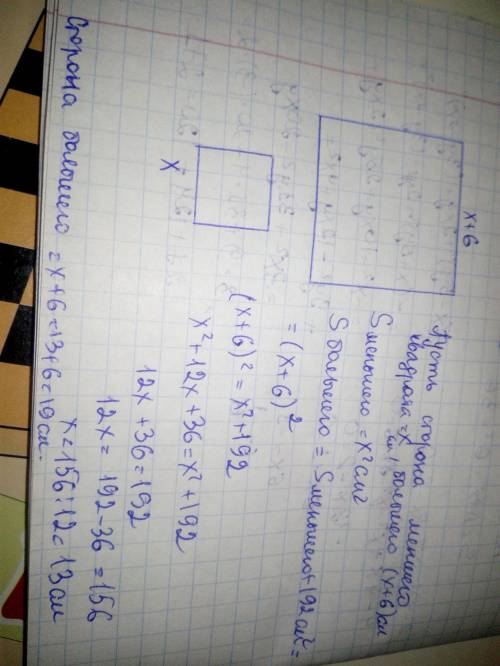 x+6
x
Пусть сторона меньшего
квадрата = x см, большего (x+6) см
S меньшего = x² см²
S большего = S меньшего + 192 см² =
= (x+6)²
(x+6)² = x² + 192
x² + 12x + 36 = x² + 192
12x + 36 = 192
12x = 192 - 36 = 156
x = 156 : 12 = 13 см
Сторона большего = x+6 = 13+6 = 19 см.